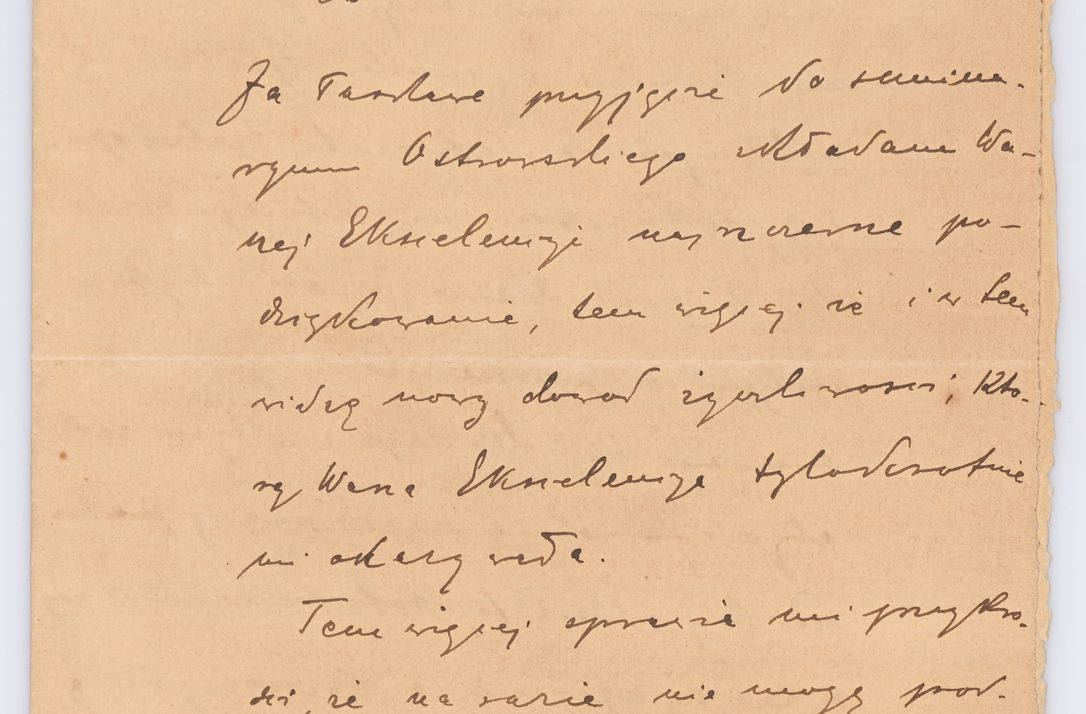 Za łaskawe przyjęcie do semina-
ryum Ostrowskiego składam Wa-
szej Ekscelencyi najszczersze po-
dziękowanie, tem więcej że i w tem
widzę nowy dowód życzliwości, któ-
rą Wasza Ekscelencya tylokrotnie
mi okazywała.
Tem więcej sprawia mi przykro-
ści, że na razie nie mogę pod-